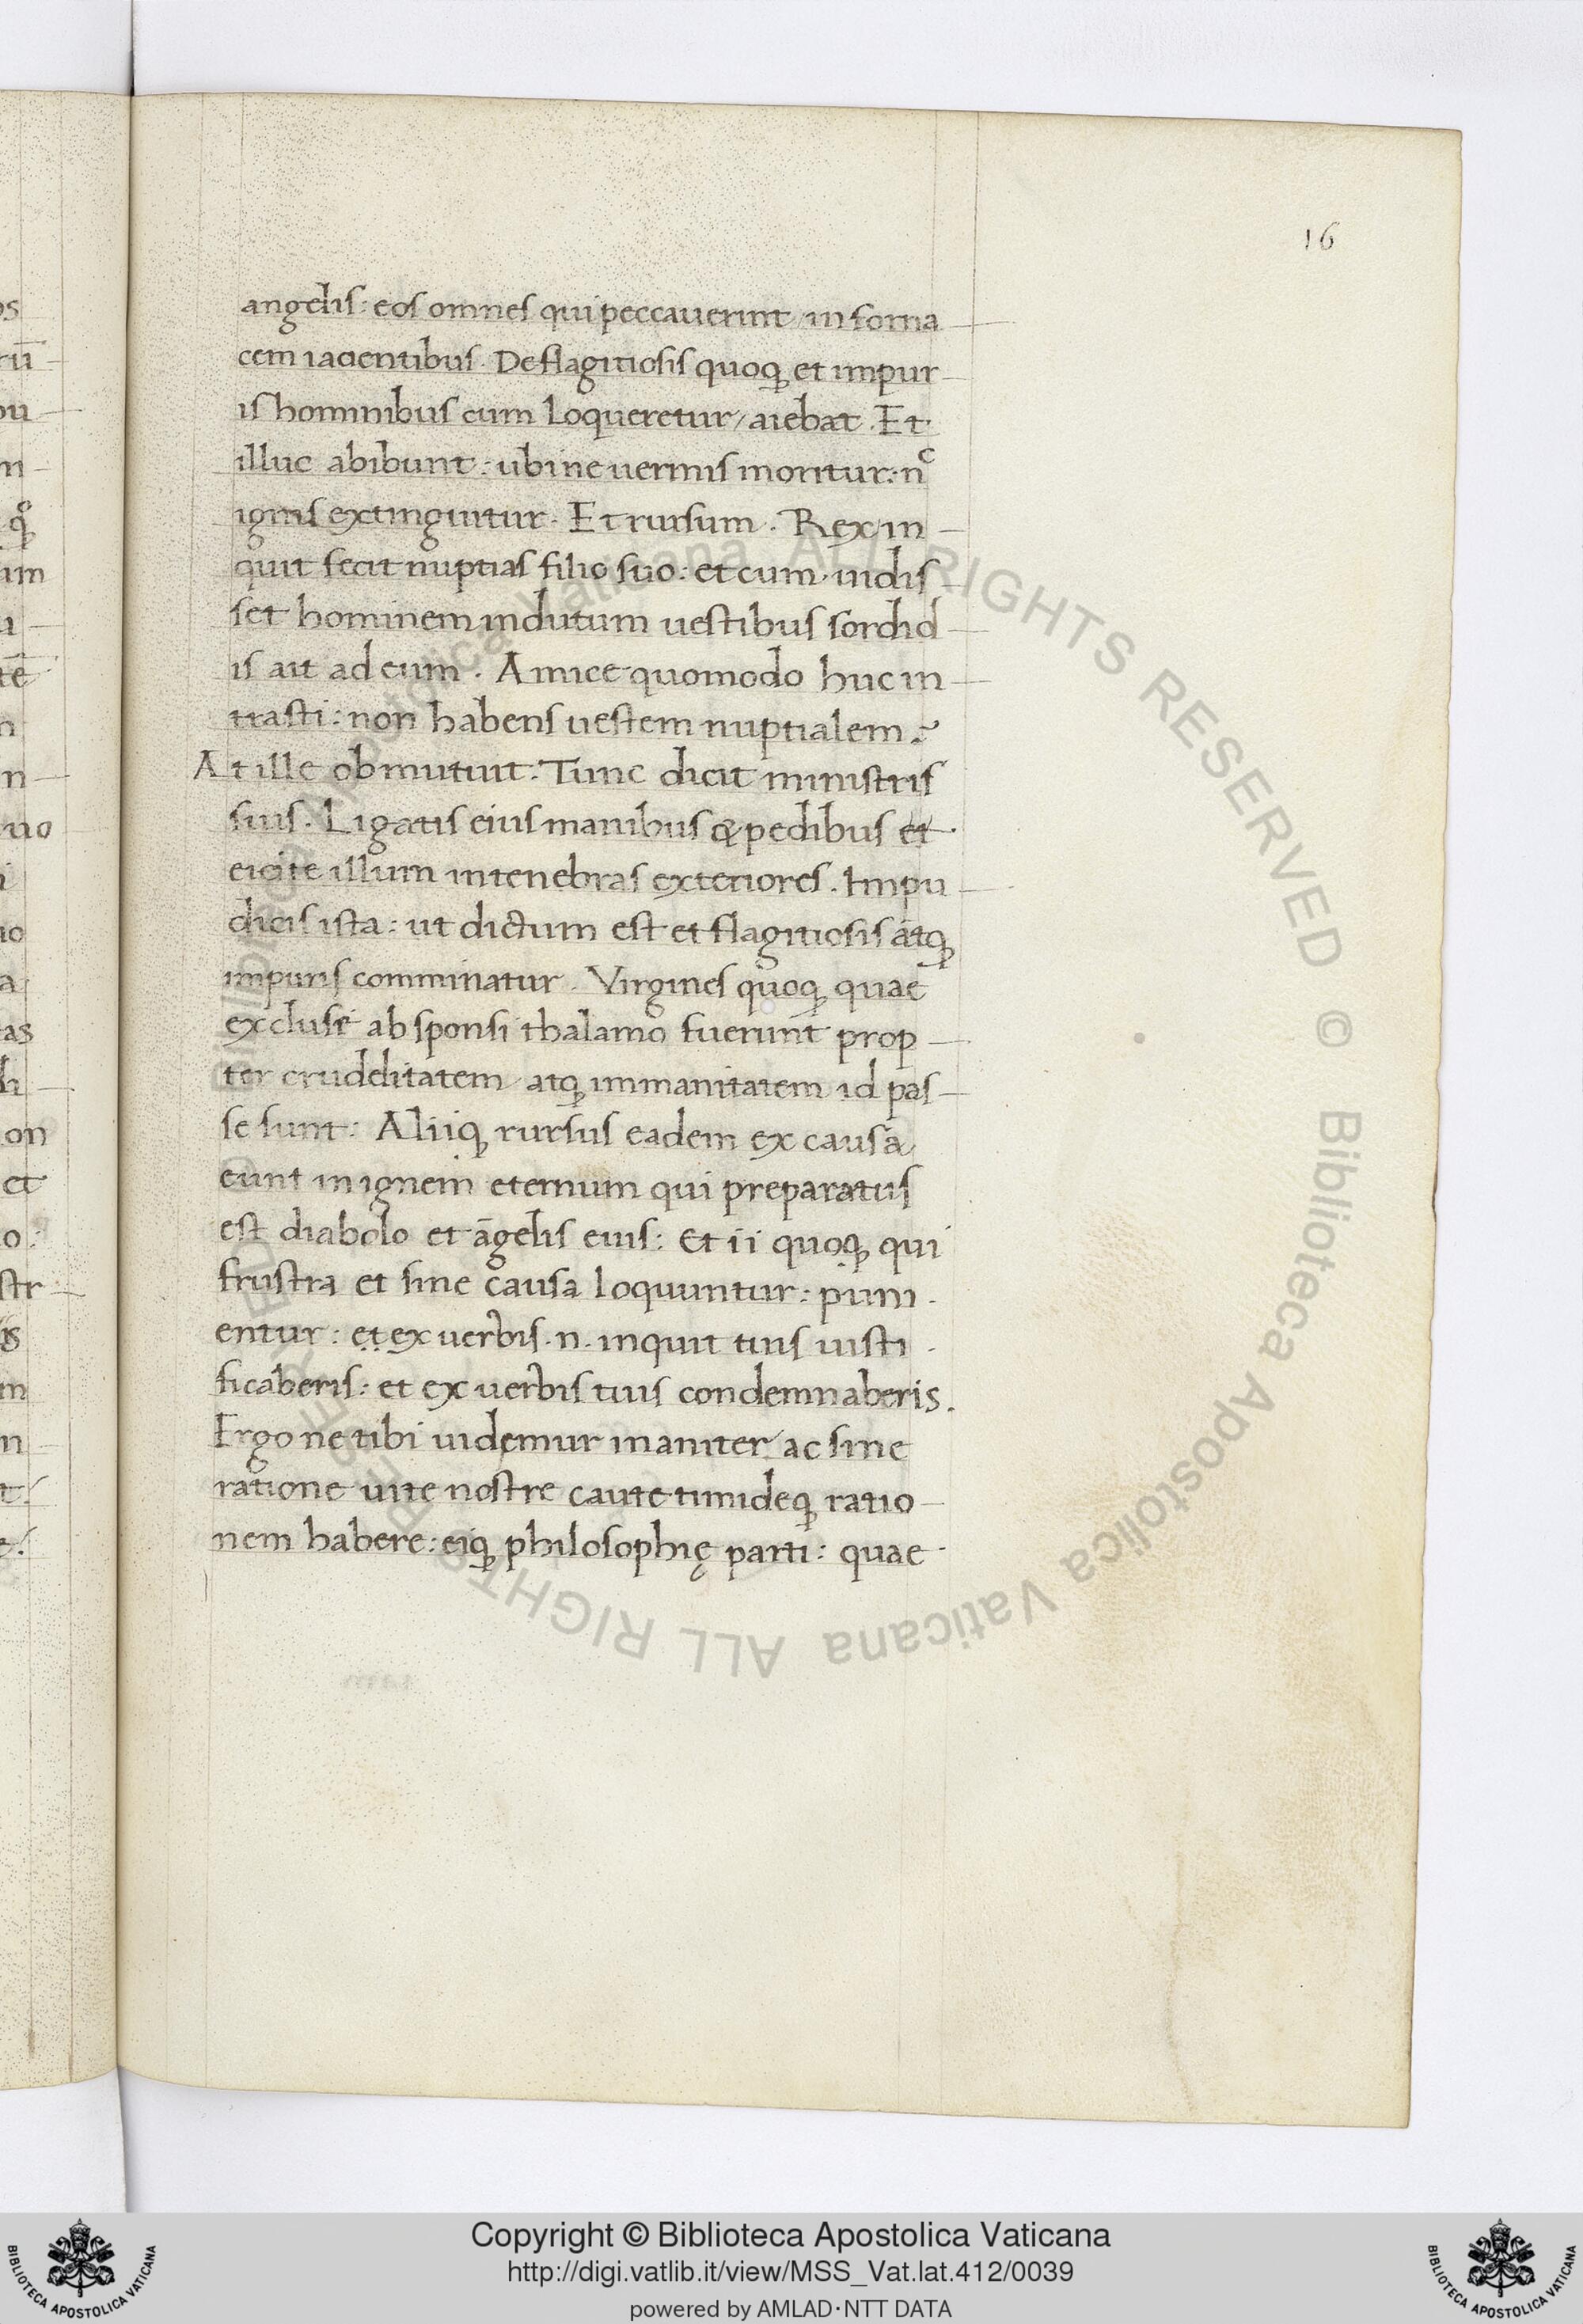 16
angelis: eos omnes qui peccauerint / in forna
cem iacientibus. De flagitiosis quoqꝫ et impur
is hominibus cum loqueretur / aiebat. Et
illuc abibunt: ubi ne uermis moritur: nᶜ
ignis extinguitur. Et rursum. Rex in
quit fecit nuptias filio suo: et cum uidis
set hominem indutum uestibus sordid
is ait ad eum. Amice quomodo huc in
trasti: non habens uestem nuptialem?
At ille obmutuit. Tunc dicit ministris
suis. Ligatis eius manibus & pedibus et
eicite illum in tenebras exteriores. Impu
dicis ista: ut dictum est et flagitiosis atqꝫ
impuris comminatur. Virgines quoqꝫ quae
excluse ab sponsi thalamo fuerunt prop
ter crudelitatem / atqꝫ immanitatem id pas
se sunt: Aliiqꝫ rursus eadem ex causa
eunt in ignem eternum qui preparatus
est diabolo et āgelis eius: Et ii quoqꝫ qui
frustra et sine causa loquuntur: puni
entur: et ex uerbis .n. inquit tuis iusti
ficaberis: et ex uerbis tuis condemnaberis.
Ergo ne tibi uidemur inaniter / ac sine
ratione uite nostre caute timideqꝫ ratio
nem habere: eiqꝫ philosophię parti: quae
Copyright © Biblioteca Apostolica Vaticana
http://digi.vatlib.it/view/MSS_Vat.lat.412/0039
powered by AMLAD·NTT DATA
BIBLIOTECA APOSTOLICA VATICANA
BIBLIOTECA APOSTOLICA VATICANA
© Biblioteca Apostolica Vaticana ALL RIGHTS RESERVED © Biblioteca Apostolica Vaticana ALL RIGHTS RESERVED